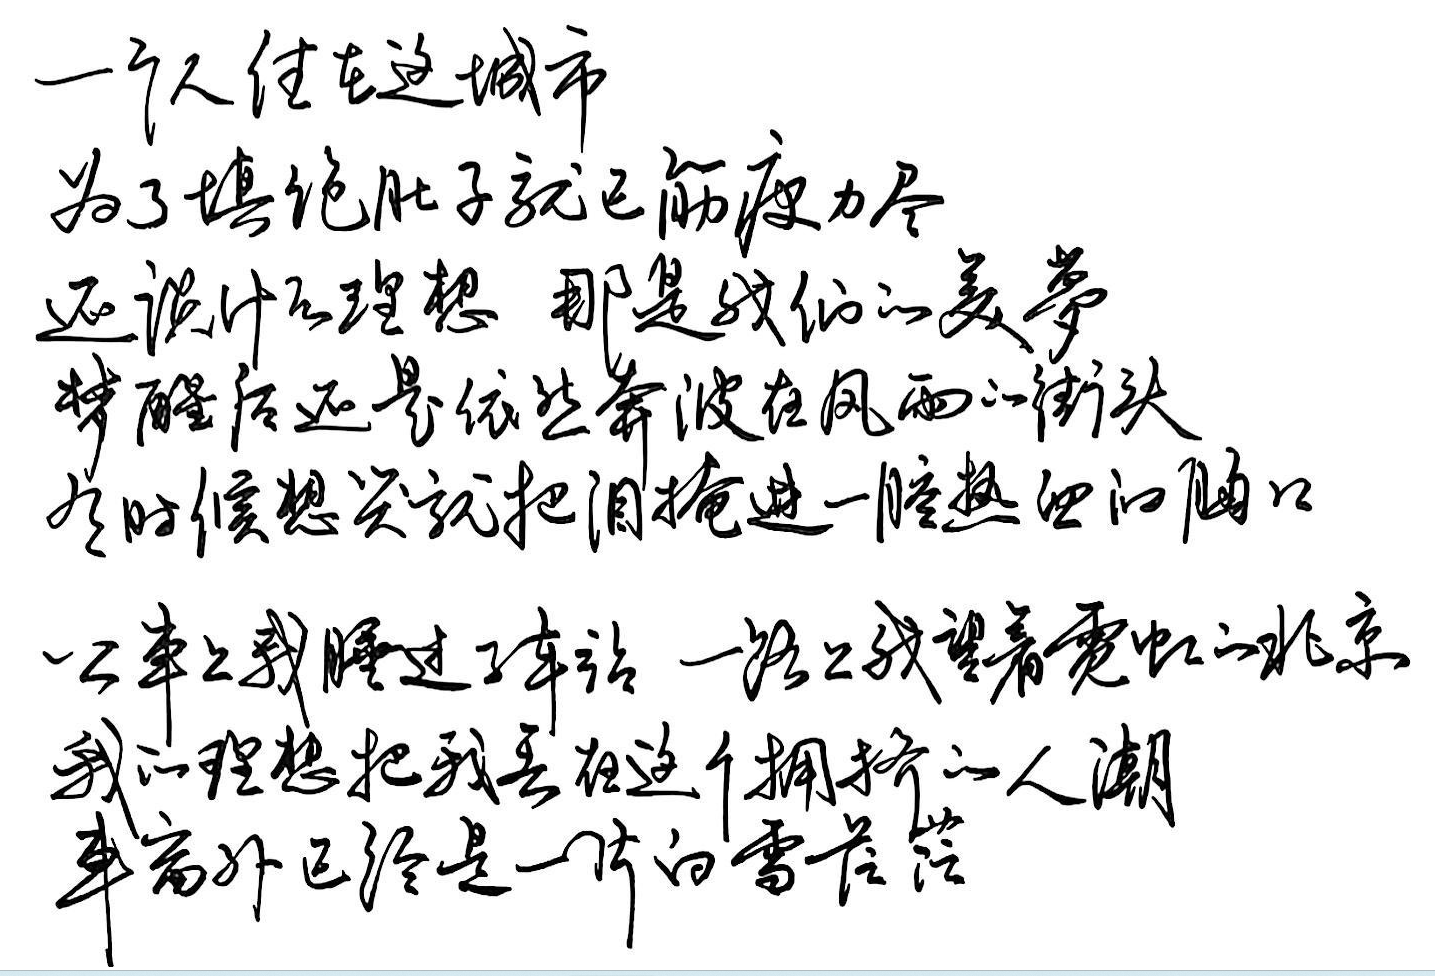 一个人住在这城市
为了填饱肚子就已筋疲力尽
还谈什么理想 那是我们的美夢
梦醒后还是依然奔波在风雨的街头
有时候想哭就把泪掩进一腔热血的胸口
公車上我睡过了车站 一路上我望着霓虹的北京
我的理想把我丢在这个拥挤的人潮
車窗外已经是一片白雪茫茫